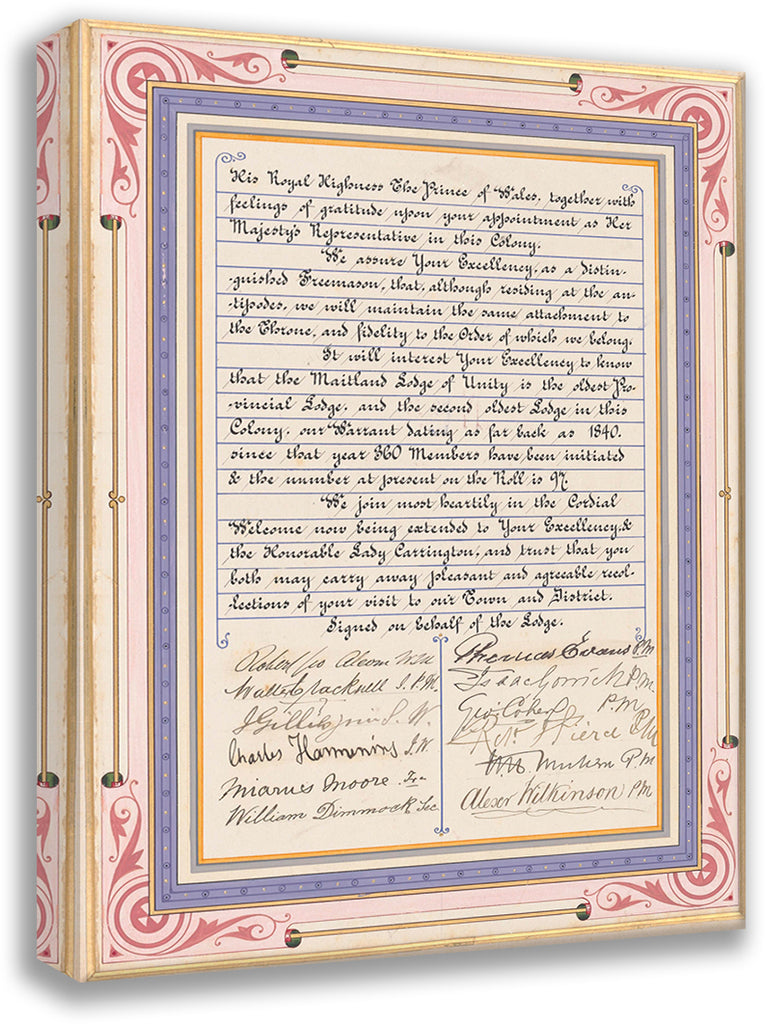 His Royal Highness The Prince of Wales, together with
feelings of gratitude upon your appointment as Her
Majesty's Representative in this Colony.
We assure Your Excellency, as a distin-
guished Freemason, that, although residing at the an-
tipodes, we will maintain the same attachment to
the Throne, and fidelity to the Order of which we belong.
It will interest Your Excellency to know
that the Maitland Lodge of Unity is the oldest Pro-
vincial Lodge, and the second oldest Lodge in this
Colony, our Warrant dating as far back as 1840.
since that year 360 Members have been initiated
& the number at present on the Roll is 97.
We join most heartily in the Cordial
Welcome now being extended to Your Excellency, &
the Honorable Lady Carrington, and trust that you
both may carry away pleasant and agreeable recol-
lections of your visit to our Town and District.
Signed on behalf of the Lodge.
Robert
Walter I.P.M.
J S.W.
Charles J.W.
Moore
William Dimmock Sec
Thomas Evans P.M
Isaac Gorrick P.M.
Geo. Coker P.M.
Pierce P.M
P M
Alexr Wilkinson P.M